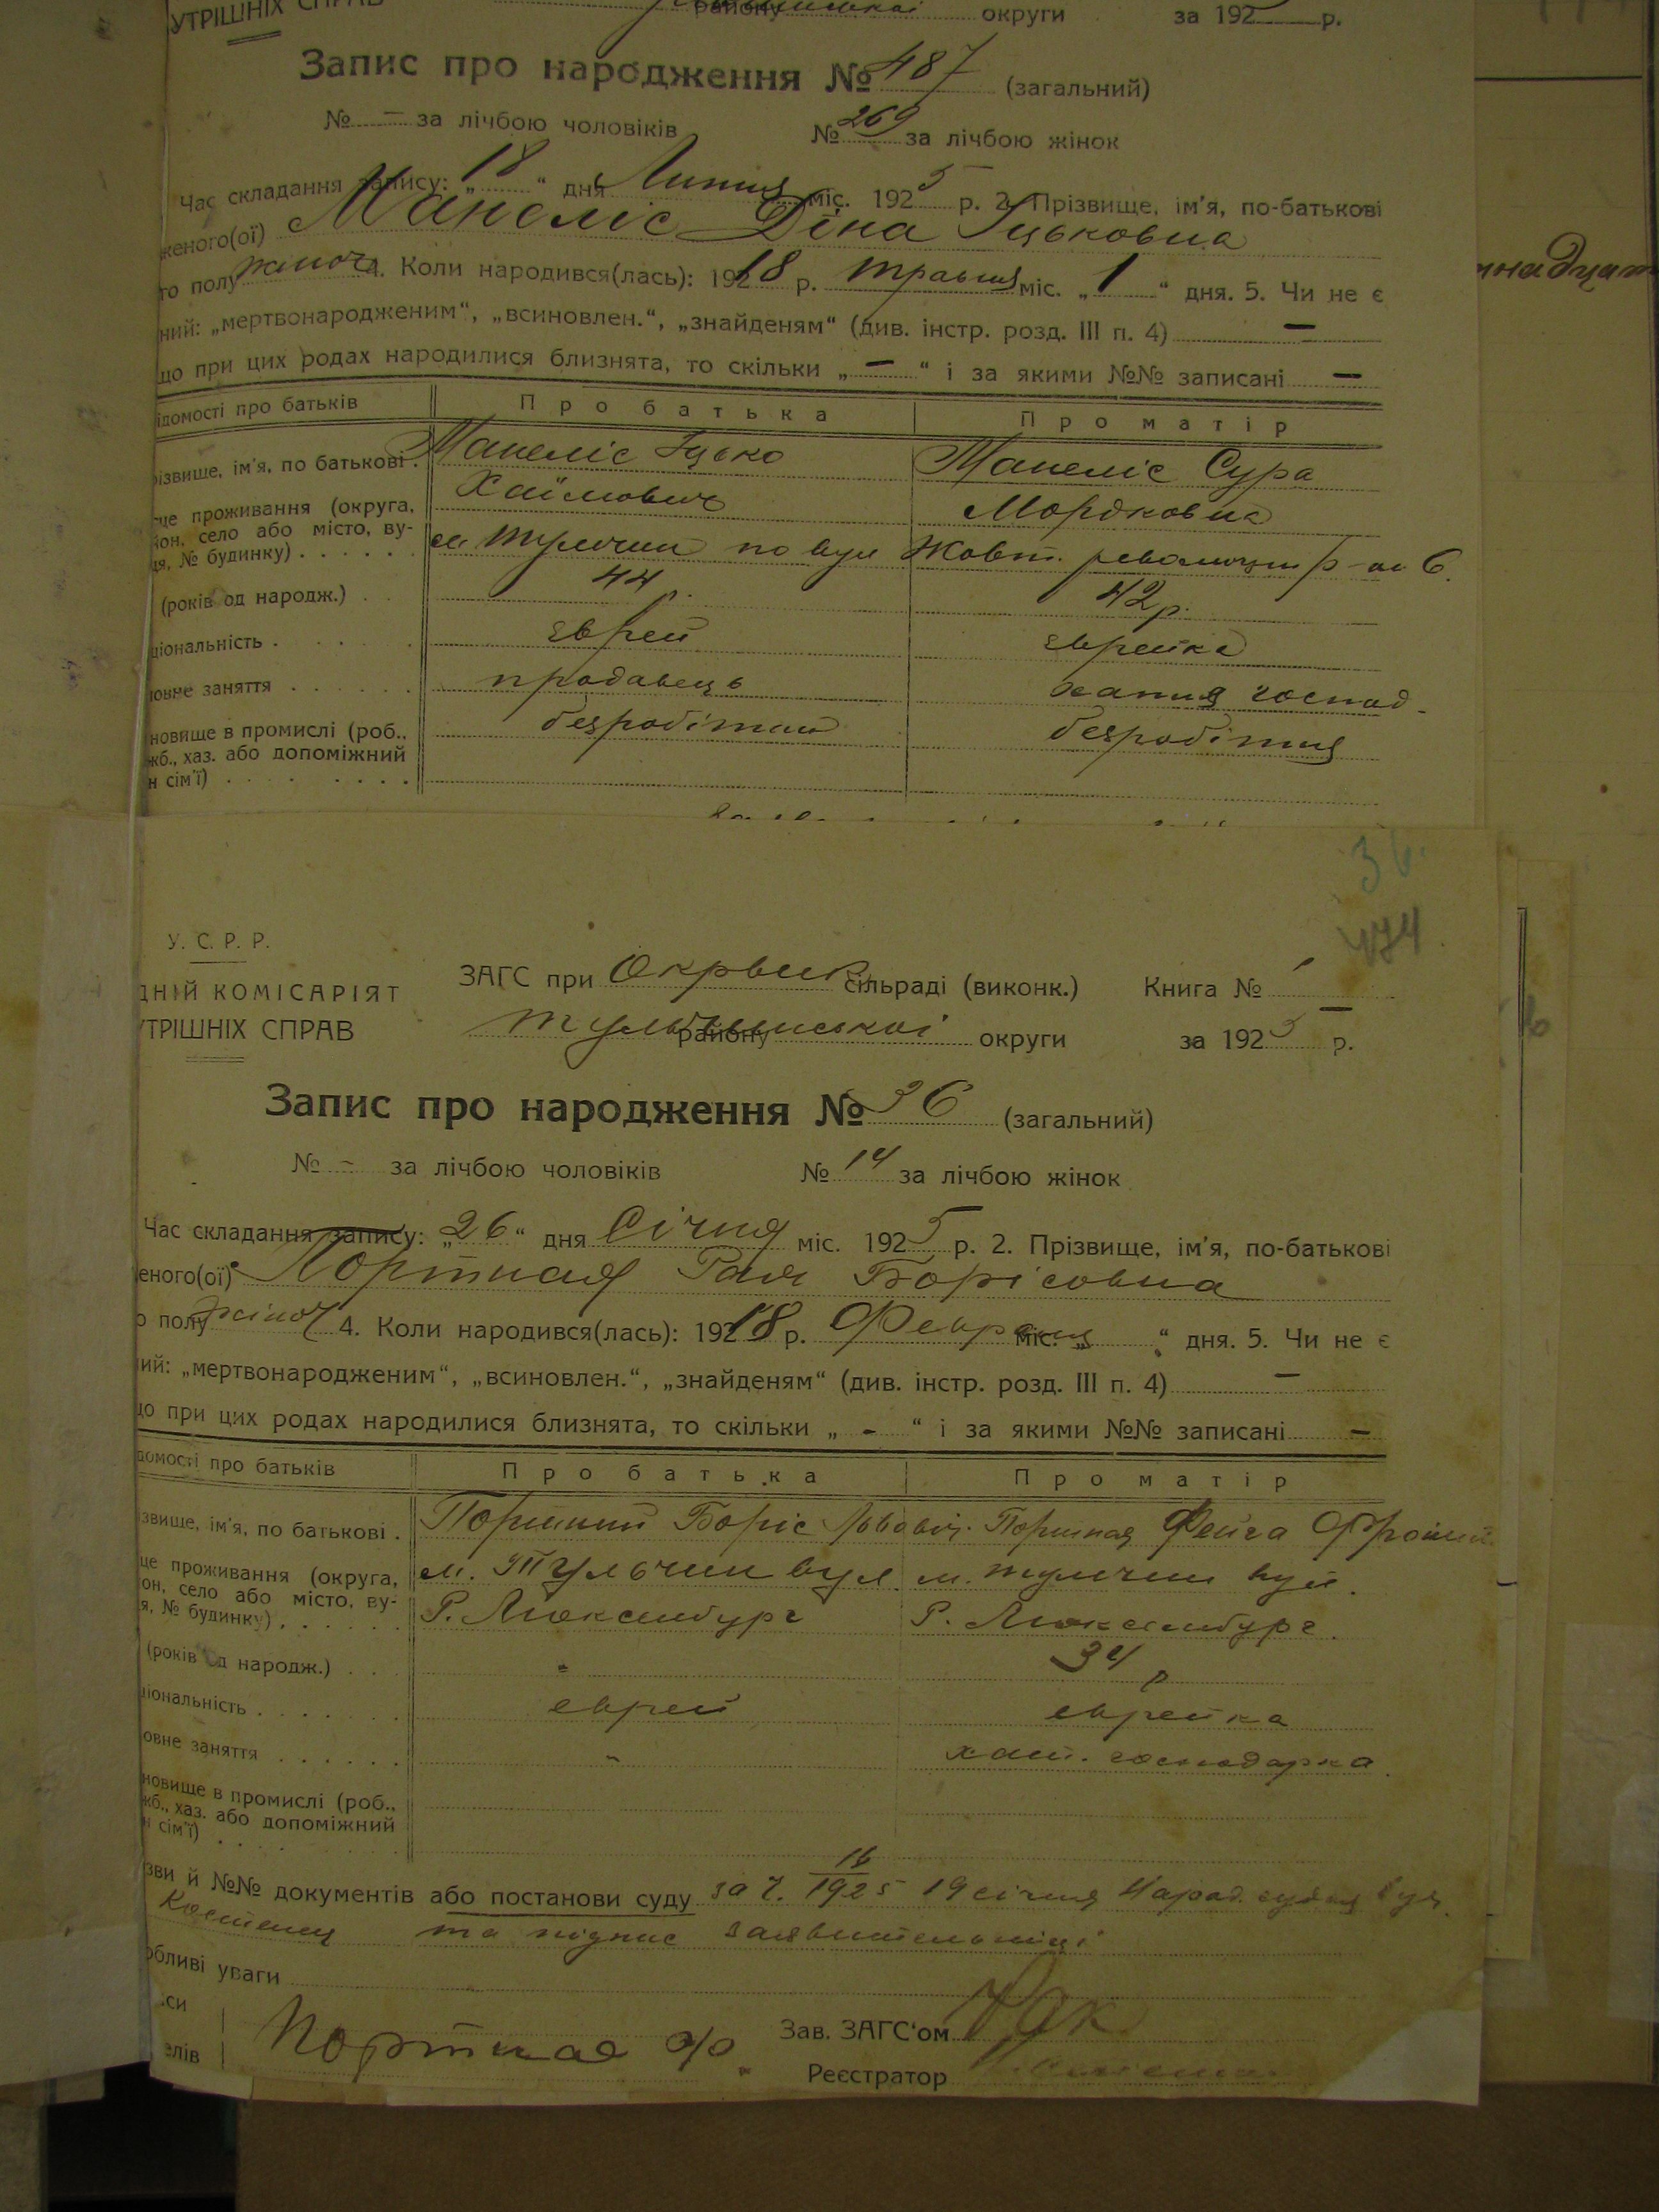 УТРІШНІХ СПРАВ району округи за 192 р.
Запис про народження № 487 (загальний)
№ — за лічбою чоловіків № 269 за лічбою жінок
Час складання запису: „18“ дня Липня міс. 1925 р. 2. Прізвище, ім'я, по-батькові
женого(ої) Манеліс Діна Іцьковна
го полу жіноч. 4. Коли народився(лась): 19218 р. травня міс. „1“ дня. 5. Чи не є
ний: „мертвонародженим“, „всиновлен.“, „знайденям“ (див. інстр. розд. III п. 4) —
що при цих родах народилися близнята, то скільки „—“ і за якими №№ записані —
ідомості про батьків Про батька Про матір
різвище, ім'я, по батькові. Манеліс Іцько Манеліс Сура
Хаїмович Мордковна
це проживання (округа,
йон, село або місто, ву-
ця, № будинку) м Тульчин по вул Жовт. революции 6.
(років од народж.) 44 р. 42 р.
ціональність єврей єврейка
ловне заняття продавець хатня господ.
новище в промислі (роб., безробітний безробітня
жб., хаз. або допоміжний
н сім'ї)
36.
474
У. С. Р. Р.
ДНІЙ КОМІСАРІЯТ ЗАГС при Окрвик. сільраді (виконк.) Книга № 1
УТРІШНІХ СПРАВ Тульчинської району округи за 1925 р.
Запис про народження № 36 (загальний)
№ - за лічбою чоловіків № 14 за лічбою жінок
Час складання запису: „26“ дня Січня міс. 1925 р. 2. Прізвище, ім'я, по-батькові
еного(ої) Портная Рая Борісовна
о полу жіноч 4. Коли народився(лась): 19218 р. Февраля міс. „ “ дня. 5. Чи не є
ний: „мертвонародженим“, „всиновлен.“, „знайденям“ (див. інстр. розд. III п. 4) —
що при цих родах народилися близнята, то скільки „ - “ і за якими №№ записані —
домості про батьків Про батька Про матір
ізвище, ім'я, по батькові. Портний Боріс Львович. Портная Фейга
це проживання (округа, м. Тульчин вул. м. Тульчин вул.
он, село або місто, ву-
я, № будинку) Р. Люксембург Р. Люксембург.
(років од народж.) - 34 р
ціональність еврей еврейка
овне заняття - хат. господарка.
новище в промислі (роб.,
жб., хаз. або допоміжний
н сім'ї)
зви й №№ документів або постанови суду за ч. 16/1925 19 січня Народ.
та підпис заявительниці
обливі уваги
си Зав. ЗАГС'ом
елів Портная Ф. Реєстратор